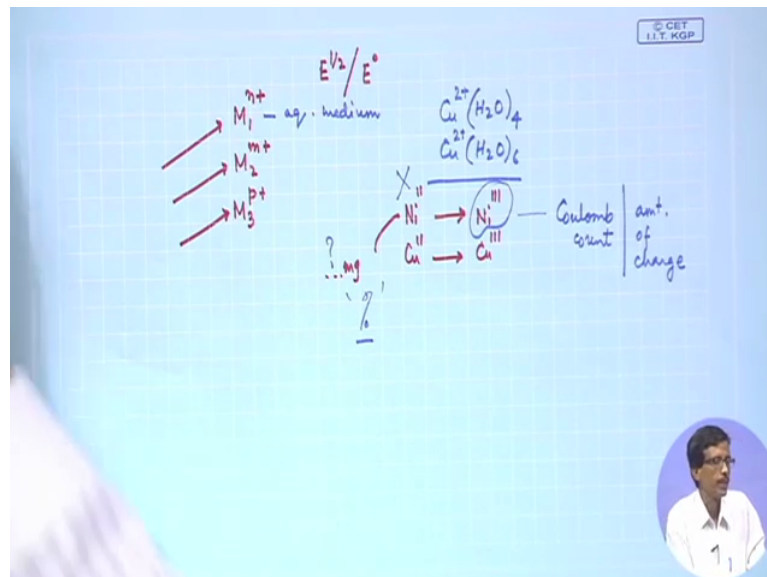 © CET
I.I.T. KGP
E^1/2 / E°
M₁ⁿ⁺ – aq. medium
M₂ᵐ⁺
M₃ᵖ⁺
Cu²⁺(H₂O)₄
Cu²⁺(H₂O)₆
X
Ni^II → Ni^III — Coulomb count | amt. of change
Cu^II → Cu^III
?
...mg
'%'